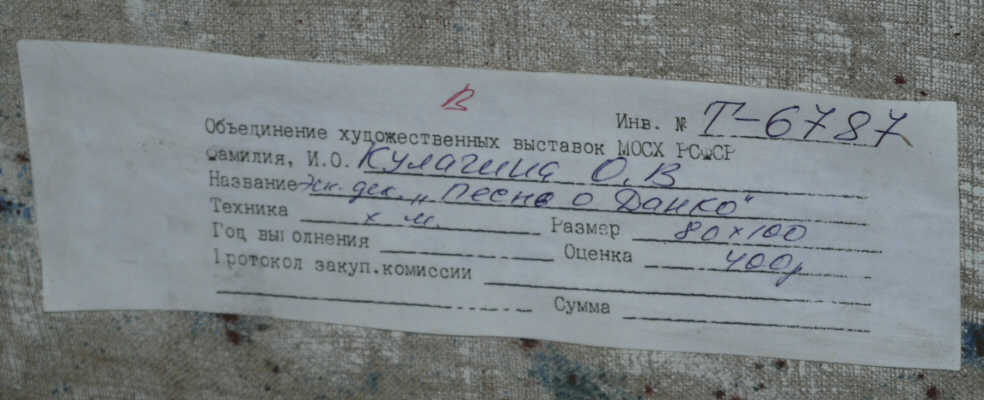 В
Инв. № Т-6787
Объединение художественных выставок МОСХ РСФСР
Фамилия, И.О. Кулагина О.В
Название Эск. дек. „Песня о Данко"
Техника х м. Размер 80х100
Год выполнения Оценка 400р
Протокол закуп.комиссии
Сумма